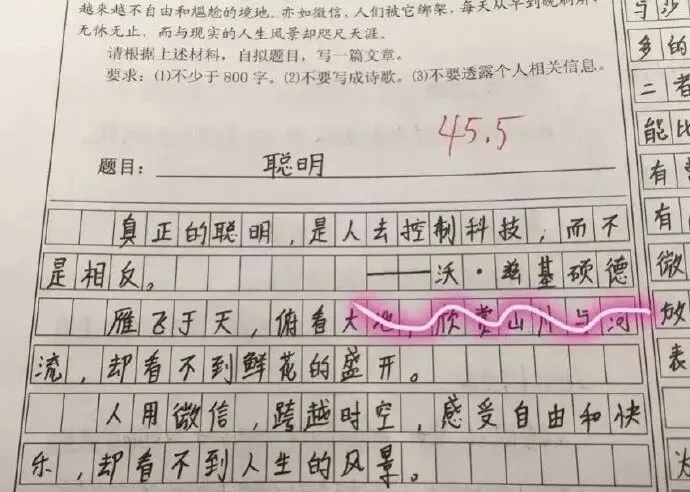 越来越不自由和尴尬的境地。亦如微信，人们被它绑架，每天从早到晚刷屏，
无休无止，而与现实的人生风景却咫尺天涯。
请根据上述材料，自拟题目，写一篇文章。
要求：(1)不少于800字。(2)不要写成诗歌。(3)不要透露个人相关信息。
45.5
题目：聪明
真正的聪明，是人去控制科技，而不
是相反。——沃·兹基硕德
雁飞于天，俯看大地，欣赏山川与河
流，却看不到鲜花的盛开。
人用微信，跨越时空，感受自由和快
乐，却看不到人生的风景。
与沙
多的
二者
能比
有
有
微
放
表